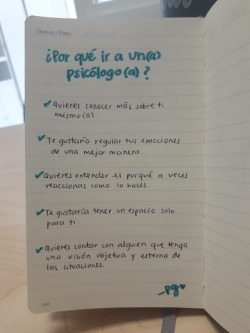 ¿Por qué ir a un(a)
psicólogo(a)?
✓Quieres conocer más sobre ti
mismo(a).
✓Te gustaría regular tus emociones
de una mejor manera.
✓Quieres entender el porqué a veces
reaccionas como lo haces.
✓Te gustaría tener un espacio solo
para ti.
✓Quieres contar con alguien que tenga
una visión objetiva y externa de
las situaciones.
-pg♥